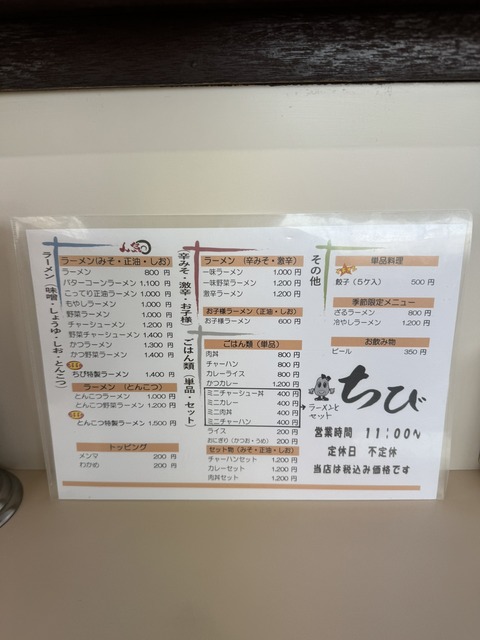 ラーメン(味噌・しょうゆ・しお・とんこつ)
ラーメン(みそ・正油・しお)
ラーメン 800 円
バターコーンラーメン 1,100 円
こってり正油ラーメン 1,000 円
もやしラーメン 1,000 円
野菜ラーメン 1,000 円
チャーシューメン 1,200 円
野菜チャーシューメン 1,400 円
かつラーメン 1,300 円
かつ野菜ラーメン 1,400 円
ちび特製ラーメン 1,400 円
ラーメン (とんこつ)
とんこつラーメン 1,000 円
とんこつ野菜ラーメン 1,200 円
とんこつ特製ラーメン 1,500 円
トッピング
メンマ 200 円
わかめ 200 円
辛みそ・激辛・お子様)
ラーメン (辛みそ・激辛)
一味ラーメン 1,000 円
一味野菜ラーメン 1,200 円
激辛ラーメン 1,200 円
お子様ラーメン (正油・しお)
お子様ラーメン 600 円
ごはん類(単品・セット)
ごはん類 (単品)
肉丼 800 円
チャーハン 800 円
カレーライス 800 円
かつカレー 1,200 円
ミニチャーシュー丼 400 円
ミニカレー 400 円
ミニ肉丼 400 円
ミニチャーハン 400 円
ライス 200 円
おにぎり (かつお・うめ) 200 円
セット物 (みそ・正油・しお)
チャーハンセット 1,200 円
カレーセット 1,200 円
肉丼セット 1,200 円
その他
単品料理
餃子 (5ケ入) 500 円
季節限定メニュー
ざるラーメン 800 円
冷やしラーメン 1,200 円
お飲み物
ビール 350 円
ちび
ラーメンと
セット
営業時間 11:00〜
定休日 不定休
当店は税込み価格です